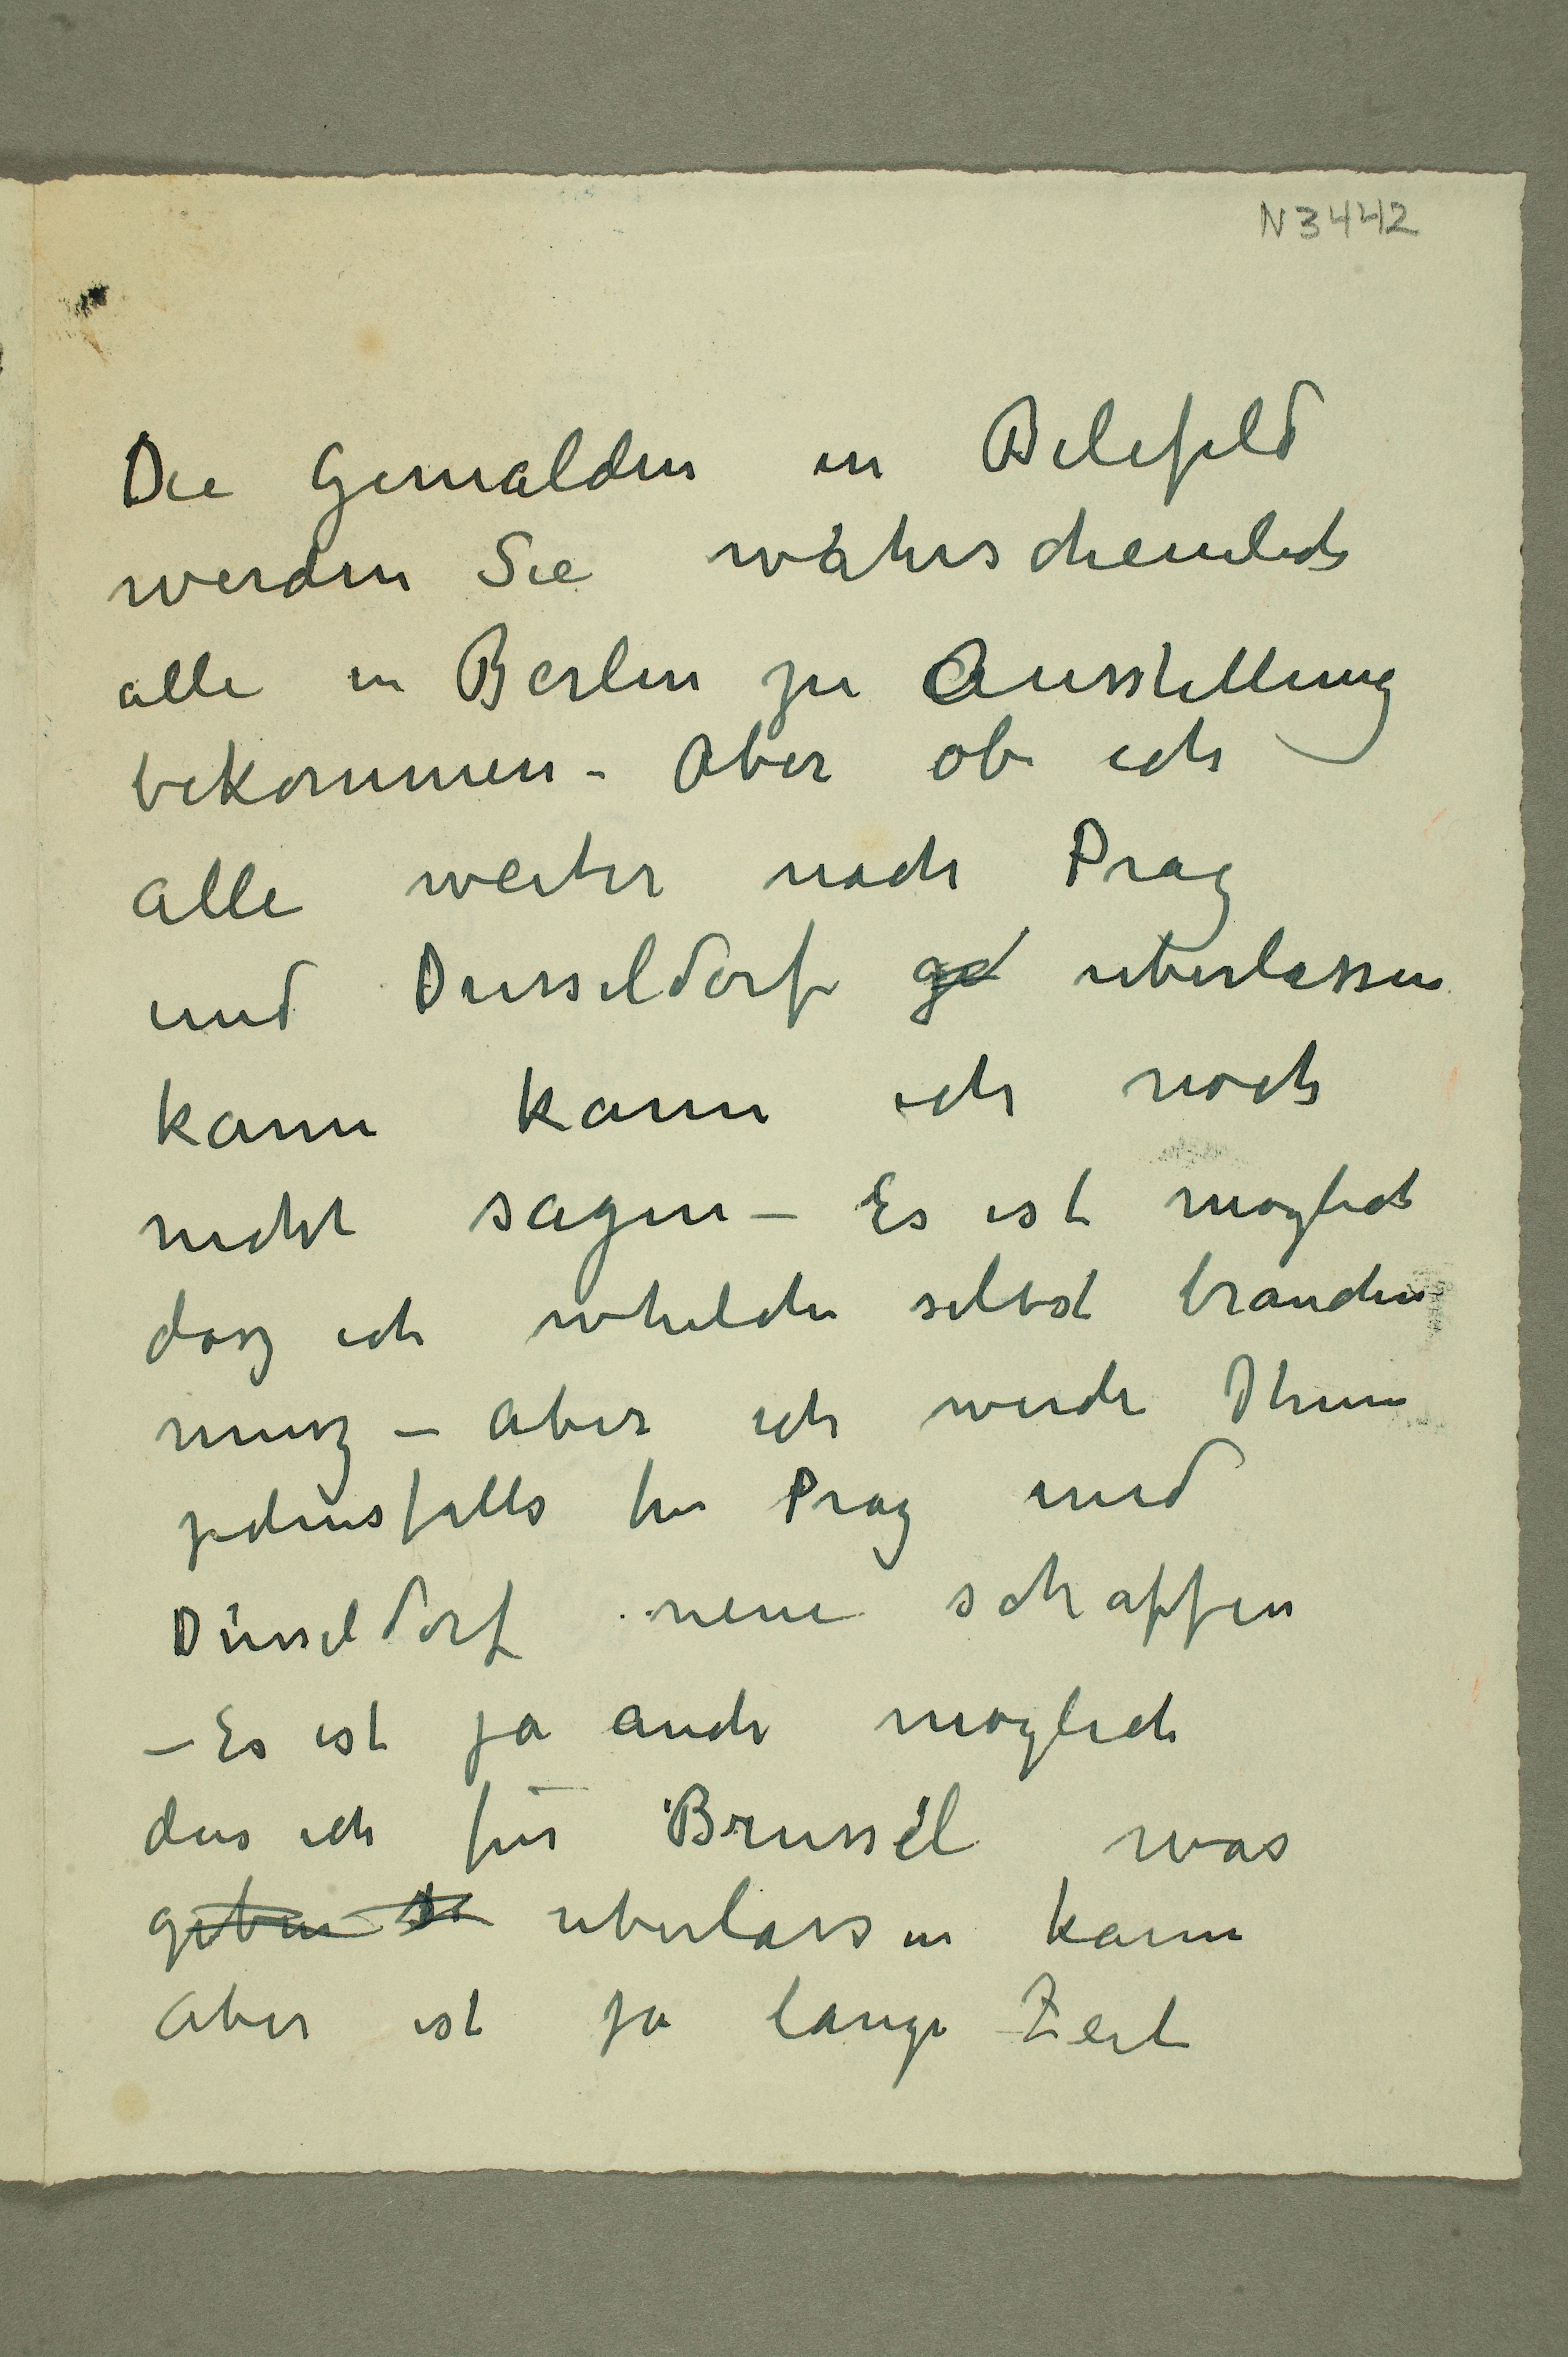 N 3442
Die Gemalden in Bilefeld
werden Sie wahrscheinlich
alle in Berlin zu Ausstellung
bekommen – Aber ob ich
alle weiter nach Prag
und Dusseldorf ge uberlassen
kann kann ich noch
nicht sagen – Es ist moglich
dasz ich whelche selbst brauchen
musz – aber ich werde Ihnen
jedensfalls für Prag und
Düsseldorf neue schaffen
– Es ist ja auch moglich
das ich für Brussel was
geben uberlassen kann
Aber ist ja lange Zeit